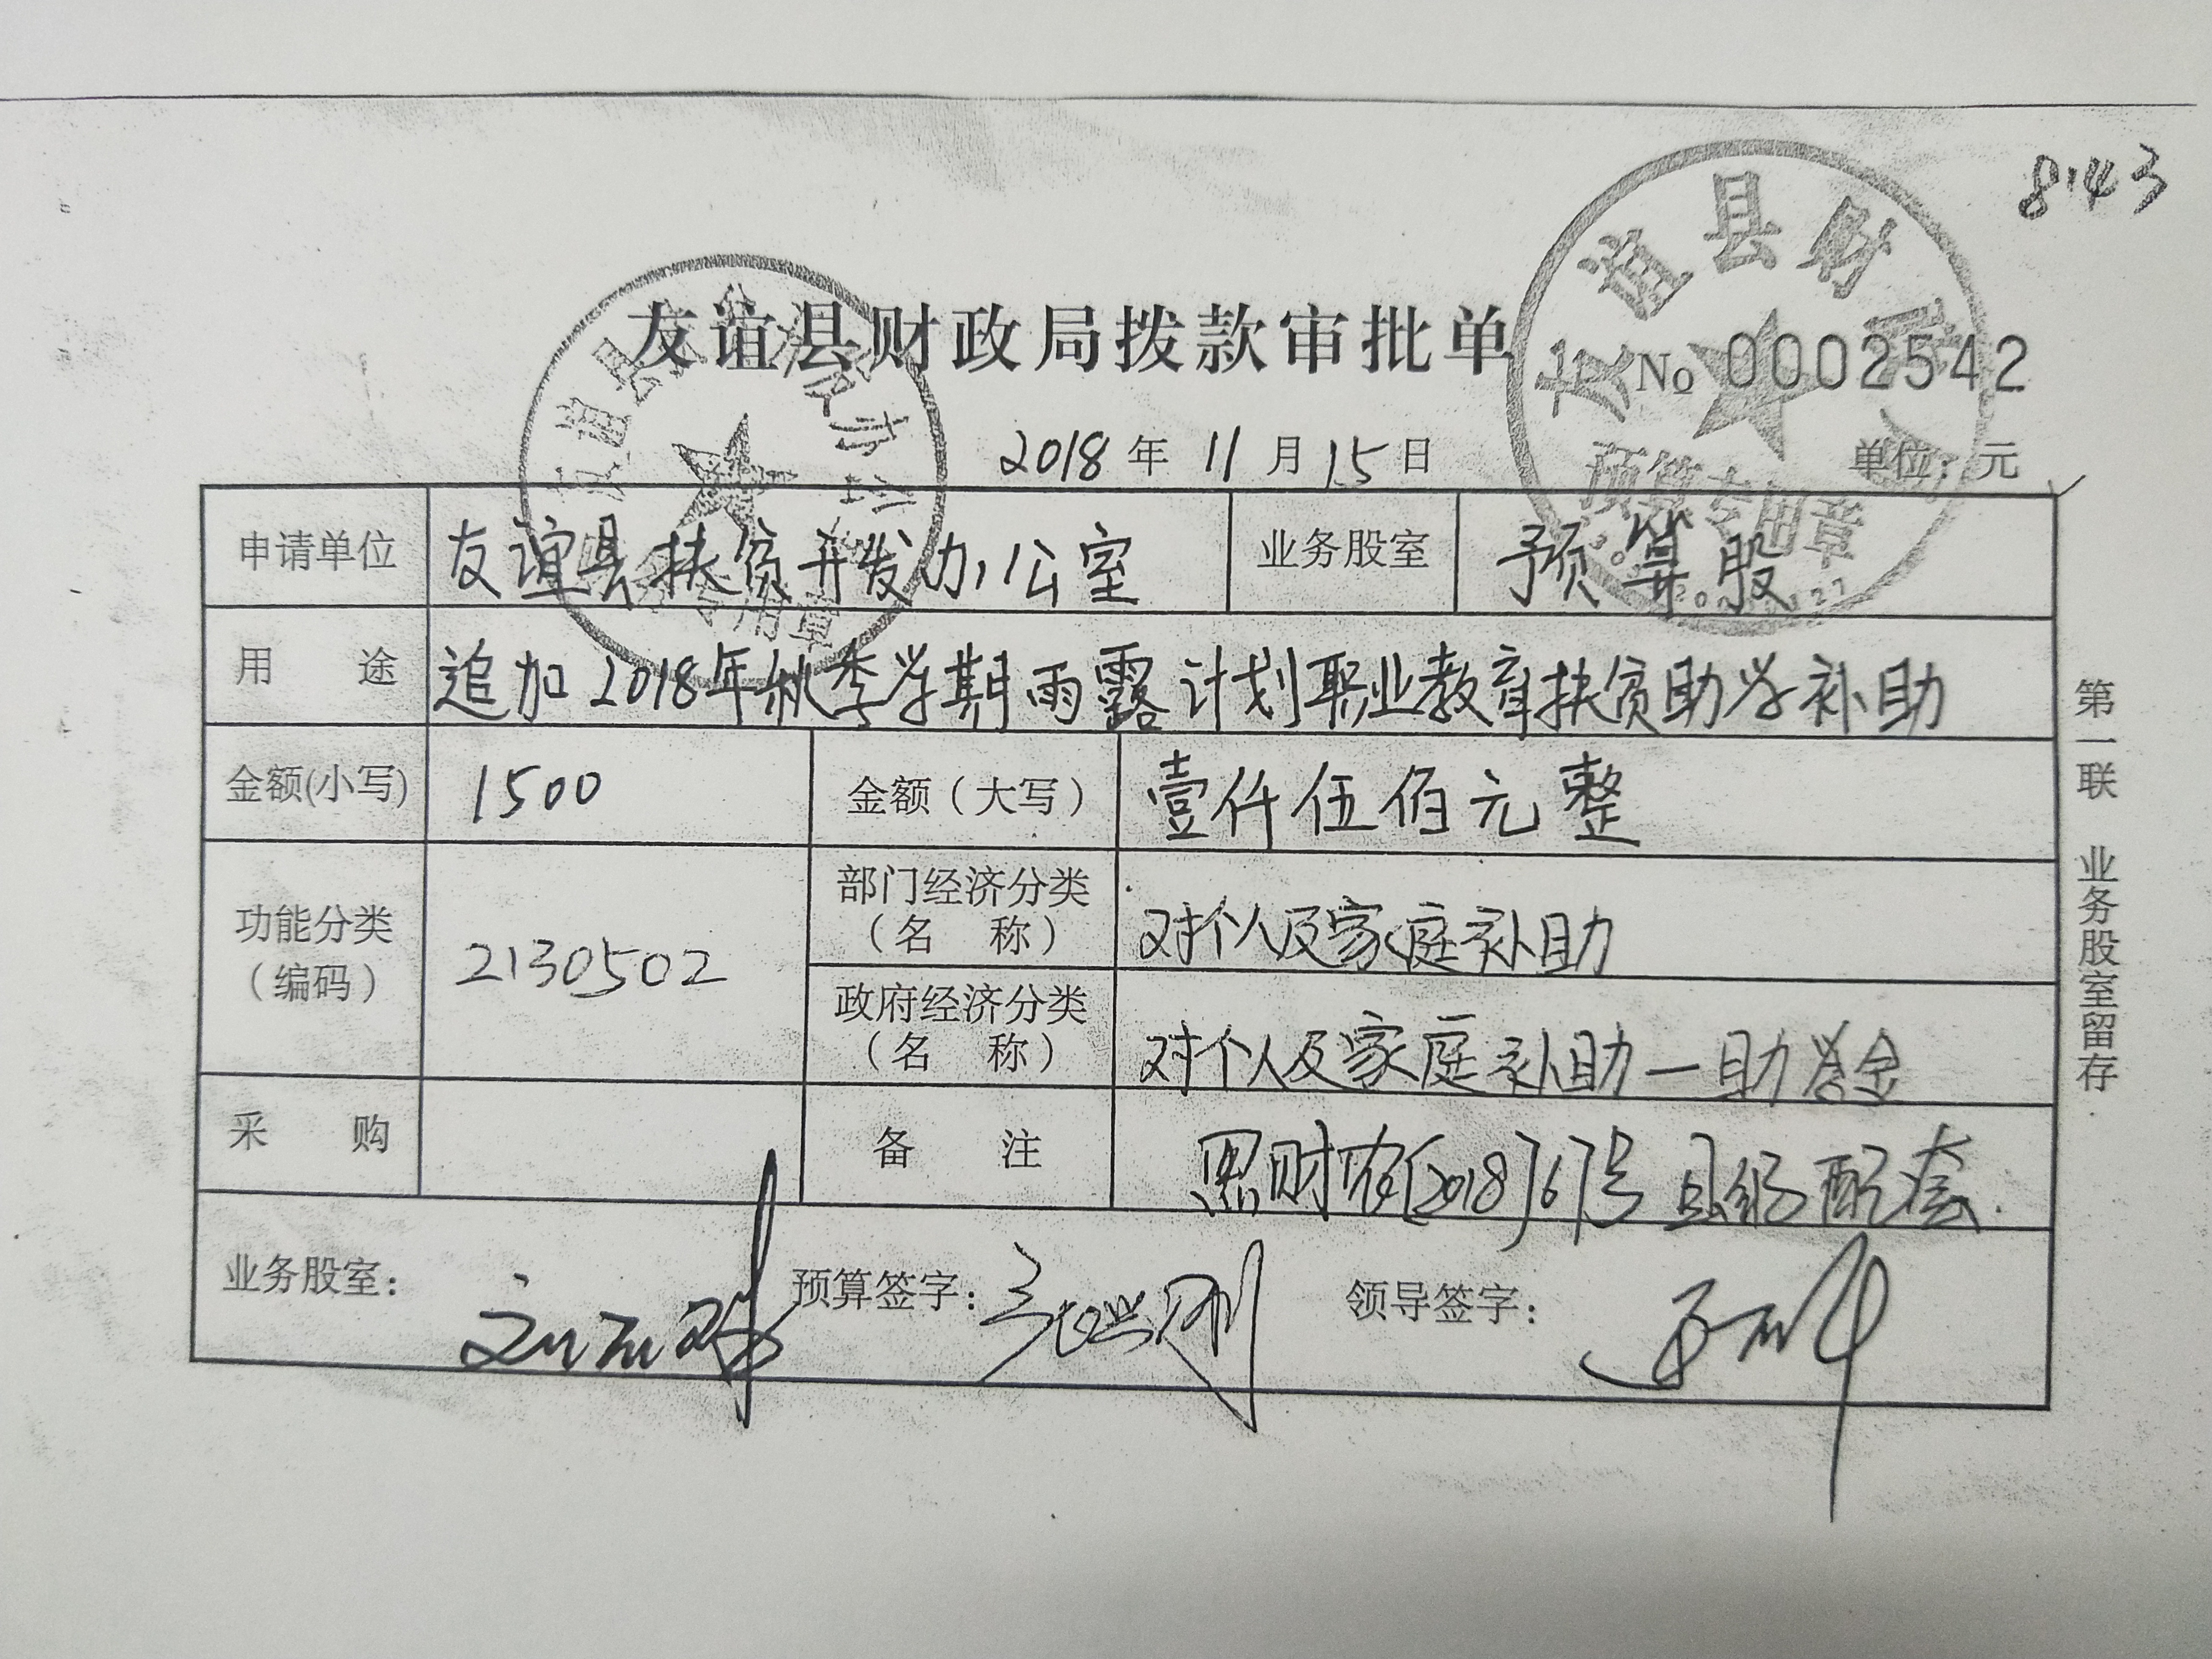 8143
友谊县财政局拨款审批单
No 0002542
2018年11月15日
单位：元
申请单位 友谊县扶贫开发办公室 业务股室 预算股
用途 追加2018年秋季学期雨露计划职业教育扶贫助学补助
金额(小写) 1500 金额（大写） 壹仟伍佰元整
功能分类（编码） 2130502 部门经济分类（名称） 对个人及家庭补助
政府经济分类（名称） 对个人及家庭补助—助学金
采购 备注 黑财农[2018]67号 县级配套
业务股室： 预算签字： 领导签字：
第一联 业务股室留存
友谊县财
预算专用章